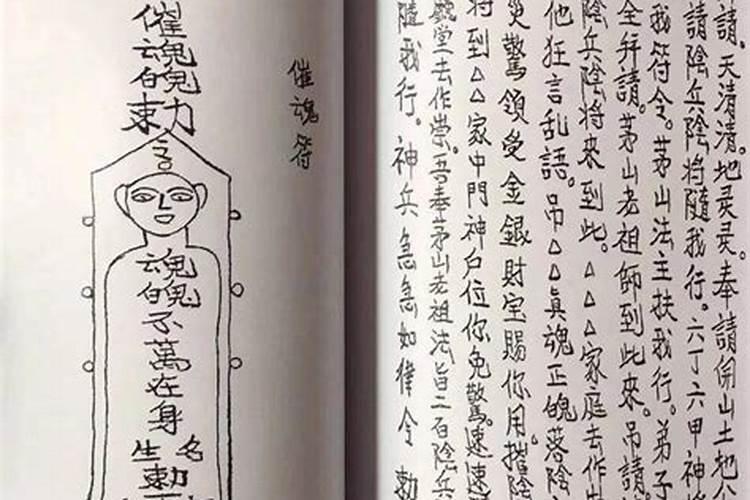 請。天清清。地灵灵。奉請開山土地
請陰兵陰將隨我行。六丁六甲神將
我符令。茅山法主扶我行。弟子
全拜請。茅山老祖師到此來。吊請
陰兵陰將来到此。△△△家庭去作
他狂言乱語。吊△△真魂正魄落陰
驚領受金銀財宝賜你用。摧陰
将到△△家中門神户位你免驚。速速
堂去作祟。吾奉茅山老祖法旨二百陰兵
隨我行。神兵急急如律令 勅
催魂符
催魂魄勅
魂魄不萬在身
名勅生